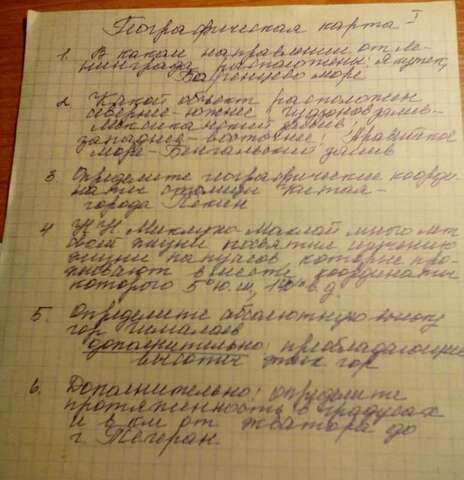 Географическая карта I
1. В каком направлении от Ле-
нинграда расположены: Якутск,
Баренцево море
2. Какой объект расположен
севернее-южнее Гудзонов залив-
Мексиканский залив;
западнее-восточнее Аравийское
море-Бенгальский залив
3. Определите географические коорди-
наты столицы Китая-
города Пекин
4. Н.Н. Миклухо-Маклай много лет
своей жизни посвятил изучению
жизни папуасов, которые про-
живают в месте, координаты
которого 5°ю.ш, в.д.
5. Определите абсолютную высоту
гор Гималаев
дополнительно: преобладающие
высоты этих гор
6. Дополнительно: определите
протяженность в градусах
и в км от экватора до
г. Тегеран